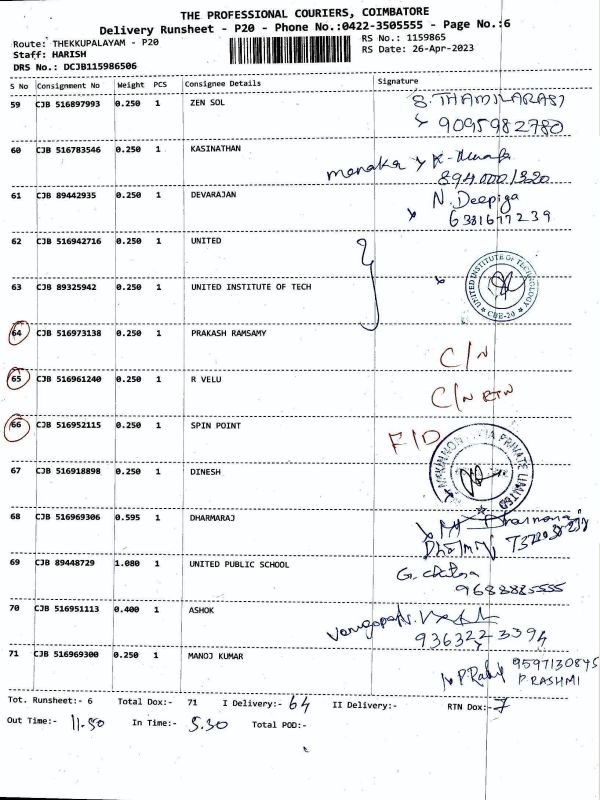 THE PROFESSIONAL COURIERS, COIMBATORE
Delivery Runsheet - P20 - Phone No.:0422-3505555 - Page No.:6
Route: THEKKUPALAYAM - P20
RS No.: 1159865
Staff: HARISH
RS Date: 26-Apr-2023
DRS No.: DCJB115986506
S No Consignment No Weight PCS Consignee Details Signature
59 CJB 516897993 0.250 1 ZEN SOL S. THAMILARASI
9095982780
60 CJB 516783546 0.250 1 KASINATHAN menaka
61 CJB 89442935 0.250 1 DEVARAJAN N. Deepiga
6381677239
62 CJB 516942716 0.250 1 UNITED
63 CJB 89325942 0.250 1 UNITED INSTITUTE OF TECH UNITED INSTITUTE OF TECHNOLOGY CBE-20
64 CJB 516973138 0.250 1 PRAKASH RAMSAMY C/N
65 CJB 516961240 0.250 1 R VELU C/N RTN
66 CJB 516952115 0.250 1 SPIN POINT F/D
67 CJB 516918898 0.250 1 DINESH PRIVATE LIMITED
68 CJB 516969306 0.595 1 DHARMARAJ
69 CJB 89448729 1.080 1 UNITED PUBLIC SCHOOL G. chitra
9688885555
70 CJB 516951113 0.400 1 ASHOK
9363223394
71 CJB 516969300 0.250 1 MANOJ KUMAR 9597130845
PRASHMI
Tot. Runsheet:- 6 Total Dox:- 71 I Delivery:- 64 II Delivery:- RTN Dox:- 7
Out Time:- 11.50 In Time:- 5.30 Total POD:-